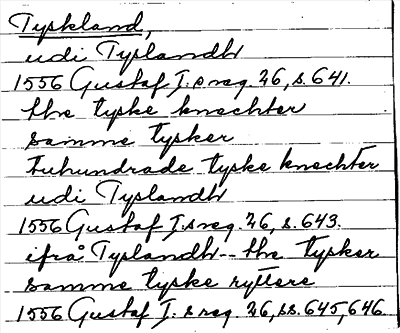 Tyskland,
udi Tyslandh
1556 Gustaf I:s reg. 26, s. 641.
the tyske knechter
samme tysker
tuhundrade tyske knechter
udi Tyslandh
1556 Gustaf I:s reg. 26, s. 643.
ifrå Tyslandh -- the tysker
samme tyske ryttere
1556 Gustaf I:s reg. 26, ss. 645, 646.